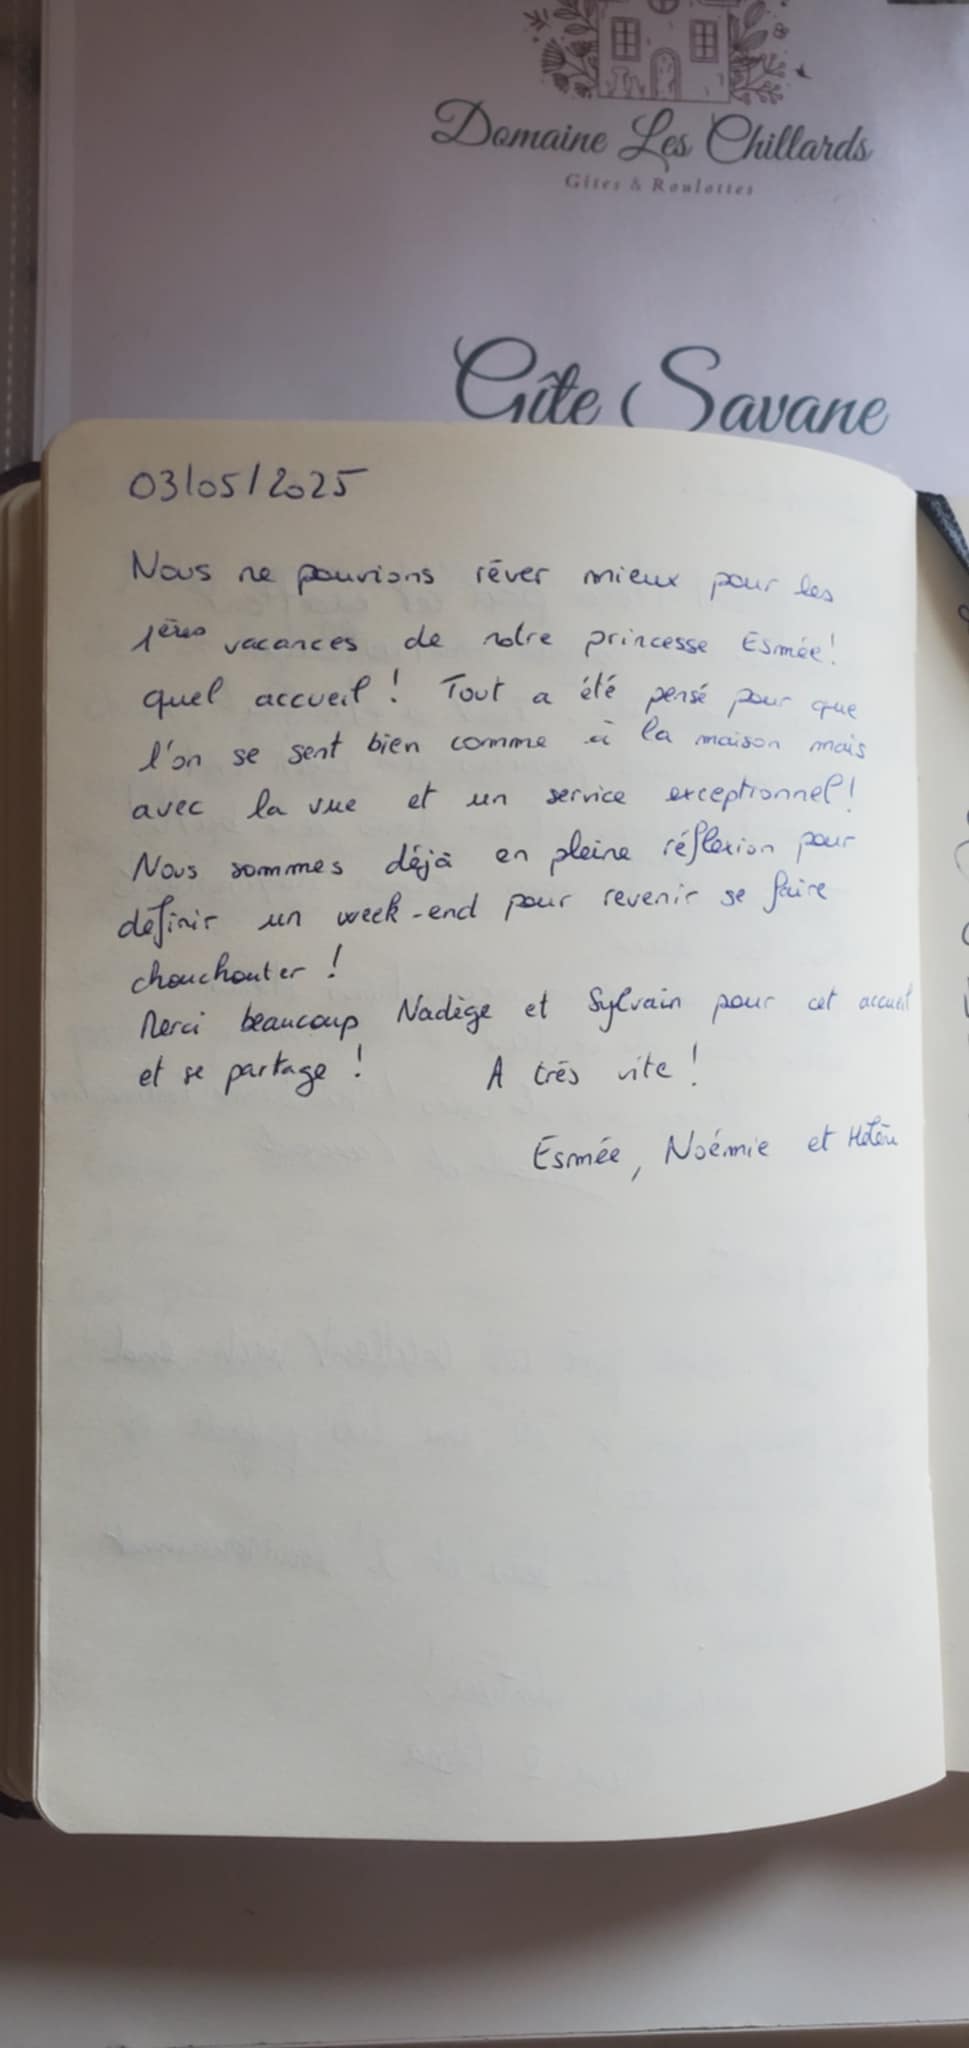 Domaine Les Chillards
Gîtes & Roulottes
Gîte Savane
03/05/2025
Nous ne pouvions rêver mieux pour les
1ères vacances de notre princesse Esmée!
quel accueil! Tout a été pensé pour que
l'on se sent bien comme à la maison mais
avec la vue et un service exceptionnel!
Nous sommes déjà en pleine réflexion pour
définir un week-end pour revenir se faire
chouchouter!
Merci beaucoup Nadège et Sylvain pour cet accueil
et se partage! A très vite!
Esmée, Noémie et